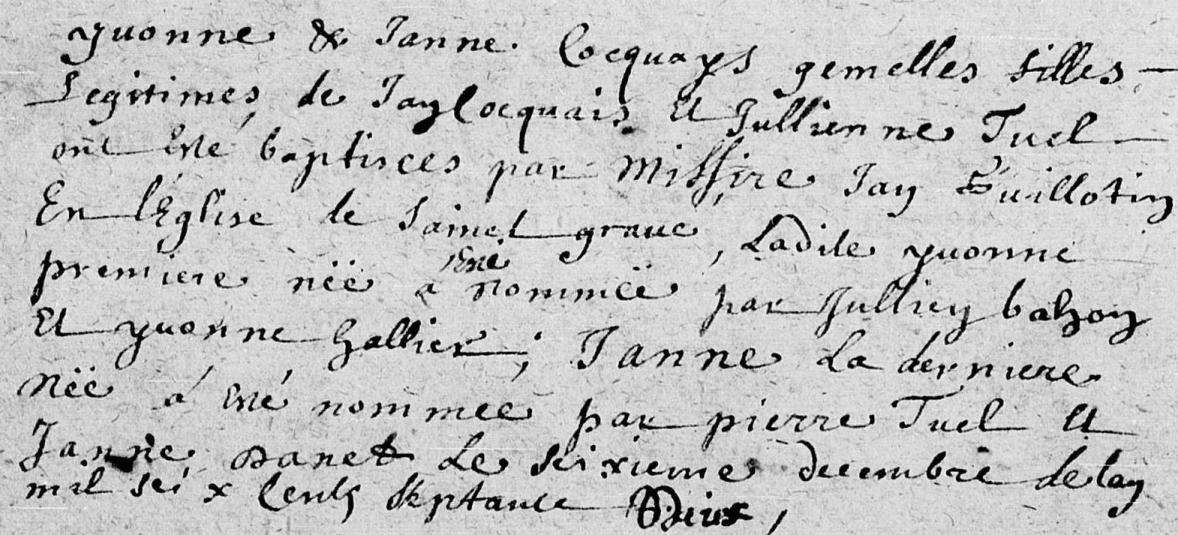 yvonne & Janne Cocquays gemelles filles
Legitimes de Jan Cocquais Et Jullienne Tuel
ont esté baptisees par Missire Jan Guillotin
En l'Eglise de Sainct grave, Ladite yvonne
premiere néë a esté nomméë par Jullien bahon
Et yvonne hallier; Janne La derniere
néë á esté nommee par pierre Tuel Et
Janne Danet Le seixieme decembre de lan
mil seix Cents septante